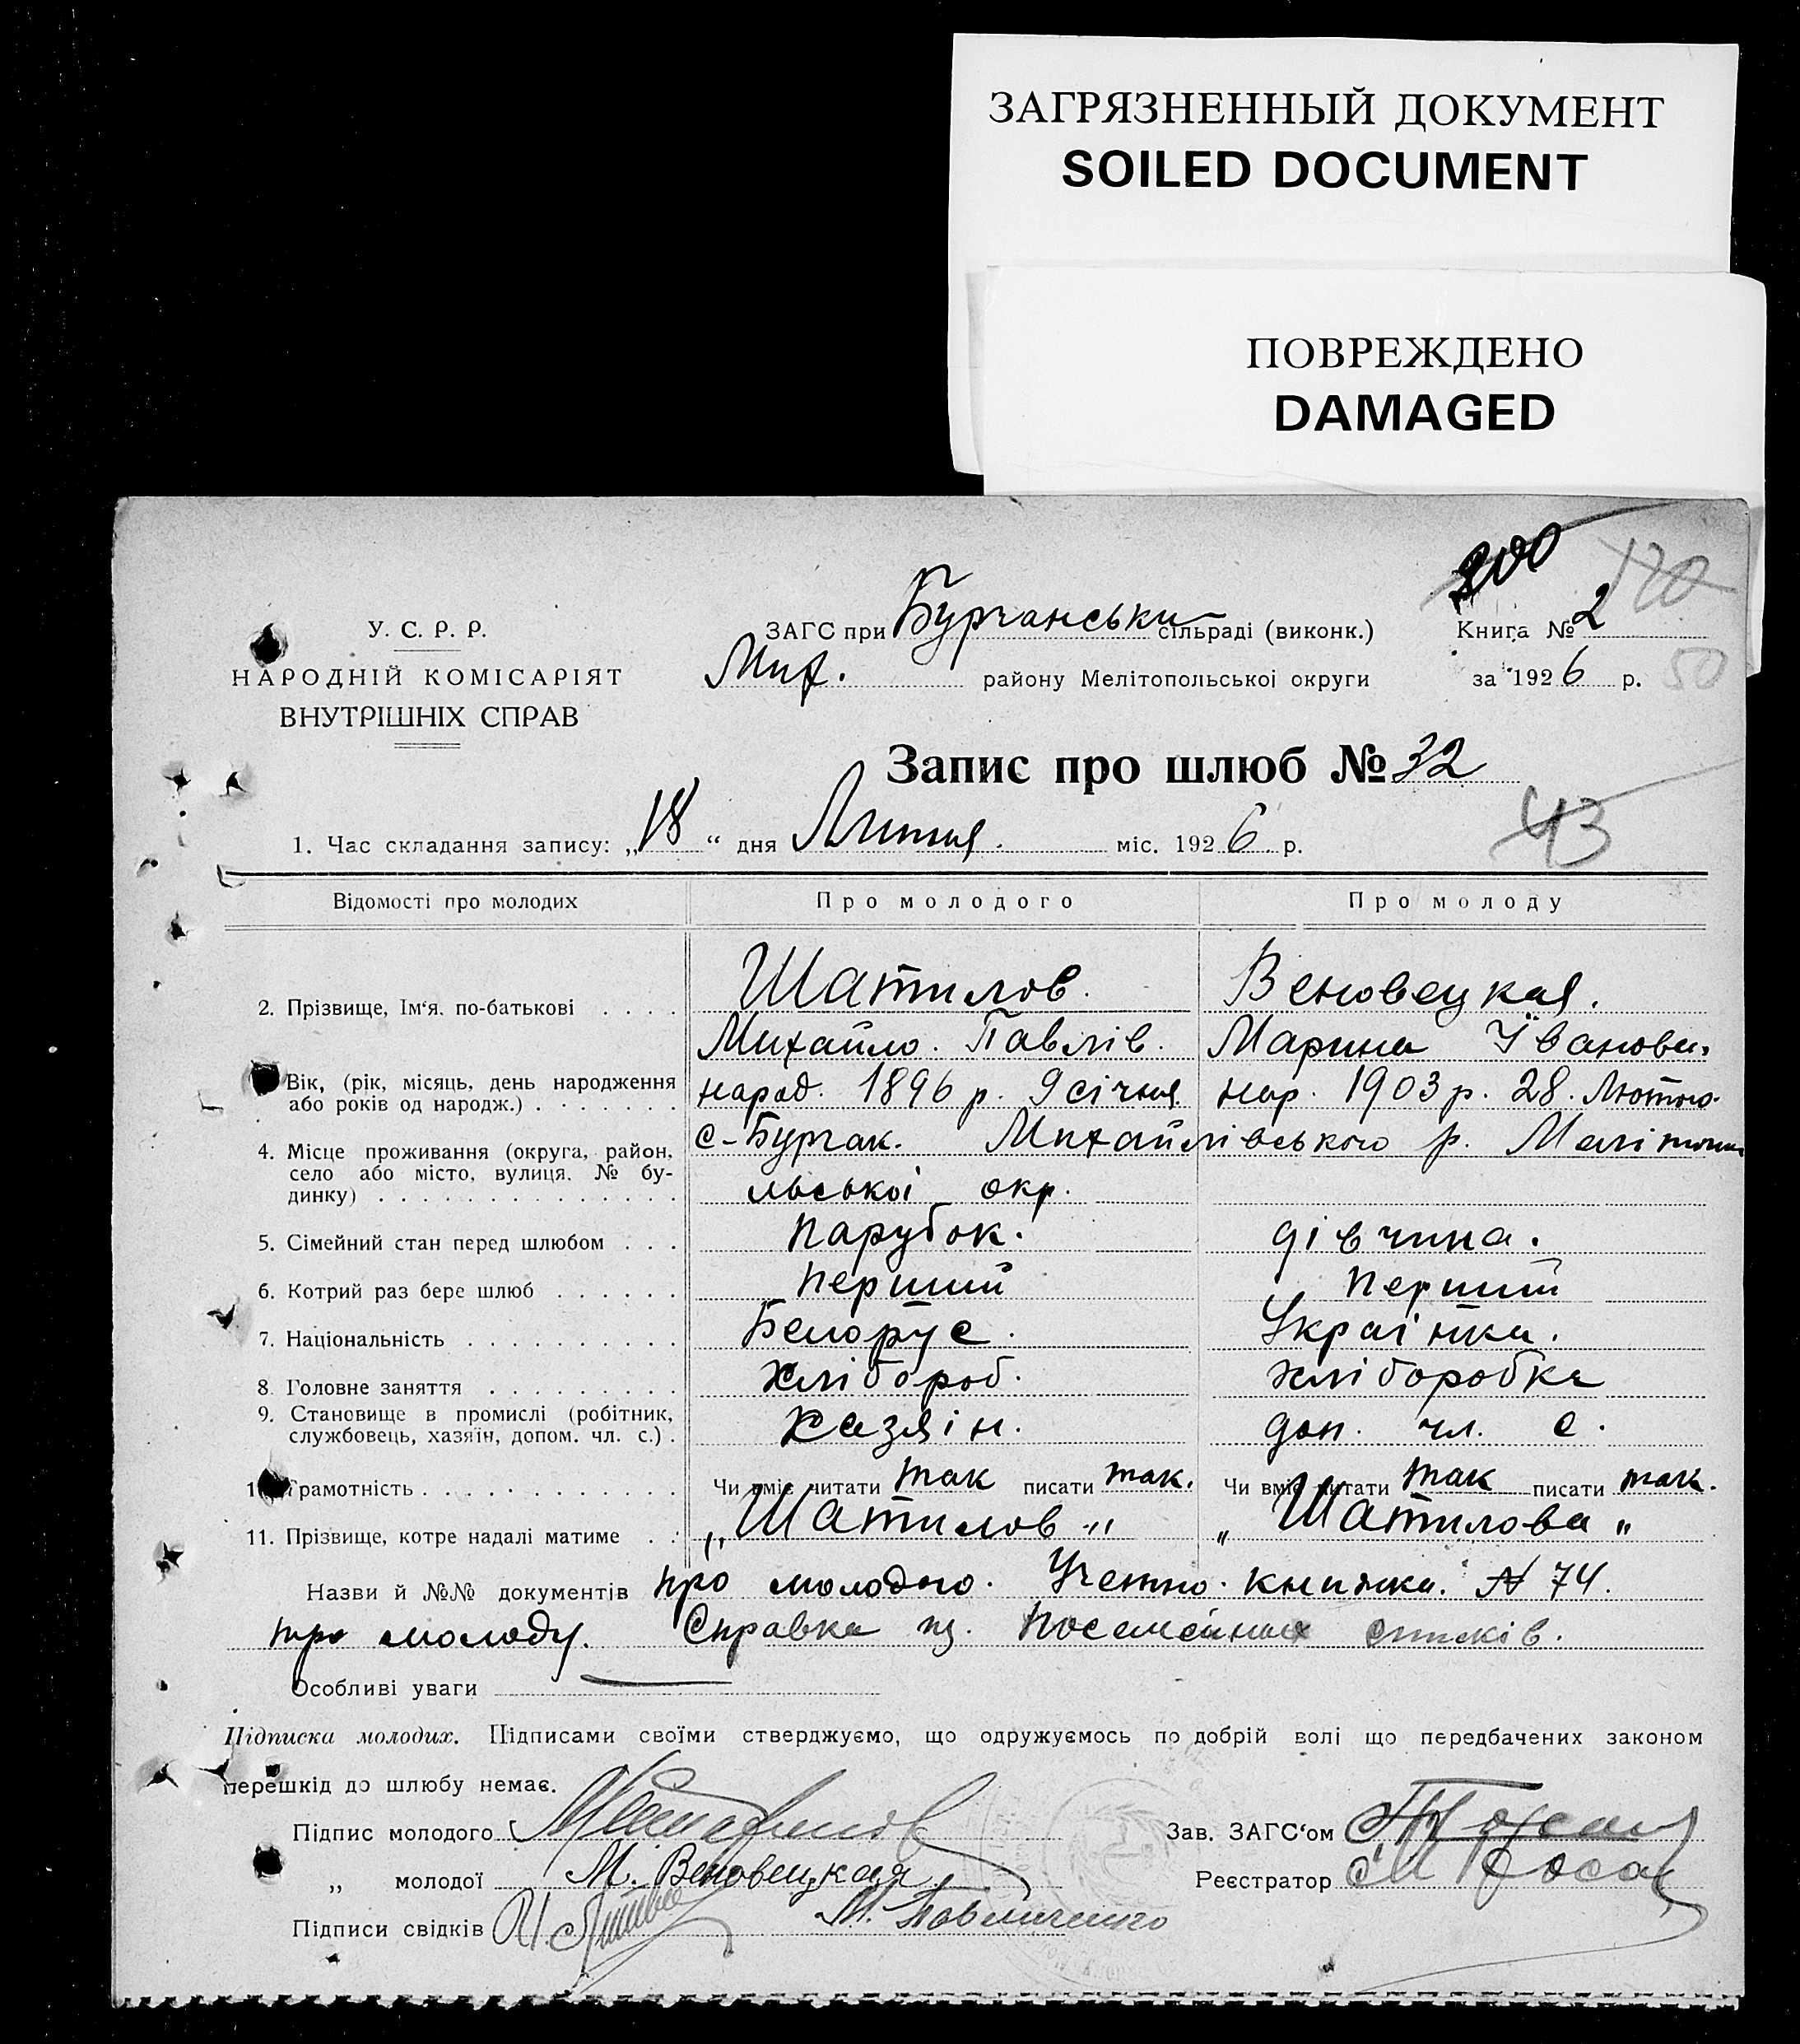 ЗАГРЯЗНЕННЫЙ ДОКУМЕНТ
SOILED DOCUMENT
ПОВРЕЖДЕНО
DAMAGED
200 120
У. С. Р. Р.
НАРОДНІЙ КОМІСАРІЯТ
ВНУТРІШНІХ СПРАВ
ЗАГС при Бурчанськи сільраді (виконк.) Книга № 2
Мих. району Мелітопольської округи за 1926 р. 50
Запис про шлюб № 32
43
1. Час складання запису: „18“ дня Липня. міс. 1926 р.
Відомості про молодих Про молодого Про молоду
2. Прізвище, Ім‘я, по-батькові . . . . Шатилов. Веновецкая.
Михайло. Павлів. Марина Іванови.
Вік, (рік, місяць, день народження або років од народж.) . . . . . . . народ. 1896 р. 9 січня нар. 1903 р. 28. Лютого.
4. Місце проживання (округа, район, село або місто, вулиця, № будинку) . . . . . . . . . . . . . . . с-Бурчак. Михайлівського р. Меліто
льської окр.
5. Сімейний стан перед шлюбом . . . парубок. дівчина.
6. Котрий раз бере шлюб . . . . . . перший перший
7. Національність . . . . . . . . . . Белорус. Українка.
8. Головне заняття . . . . . . . . . хлібороб. хліборобка
9. Становище в промислі (робітник, службовець, хазяїн, допом. чл. с.) . Хазяін. доп. чл. с.
1 Грамотність . . . . . . . . . . . . Чи вміє читати так писати так. Чи вміє читати так писати так.
11. Прізвище, котре надалі матиме . . „Шатилов“ „Шатилова“
Назви й №№ документів про молодого. Учетно. книжка. № 74.
про молоду. Справка из. посемейных списків.
Особливі уваги
Підписка молодих. Підписами своїми стверджуємо, що одружуємось по добрій волі що передбачених законом
перешкід до шлюбу немає.
Підпис молодого Зав. ЗАГС‘ом
„ молодої М. Веновецкая Реєстратор
Підписи свідків М. Павличенко